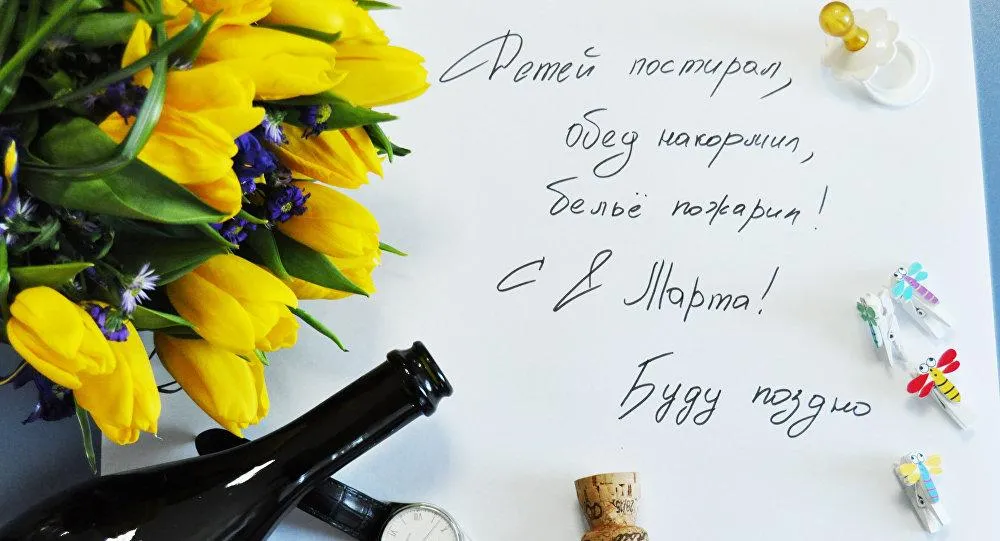 Детей постирал,
обед накормил,
бельё пожарил!
С 8 Марта!
Буду поздно